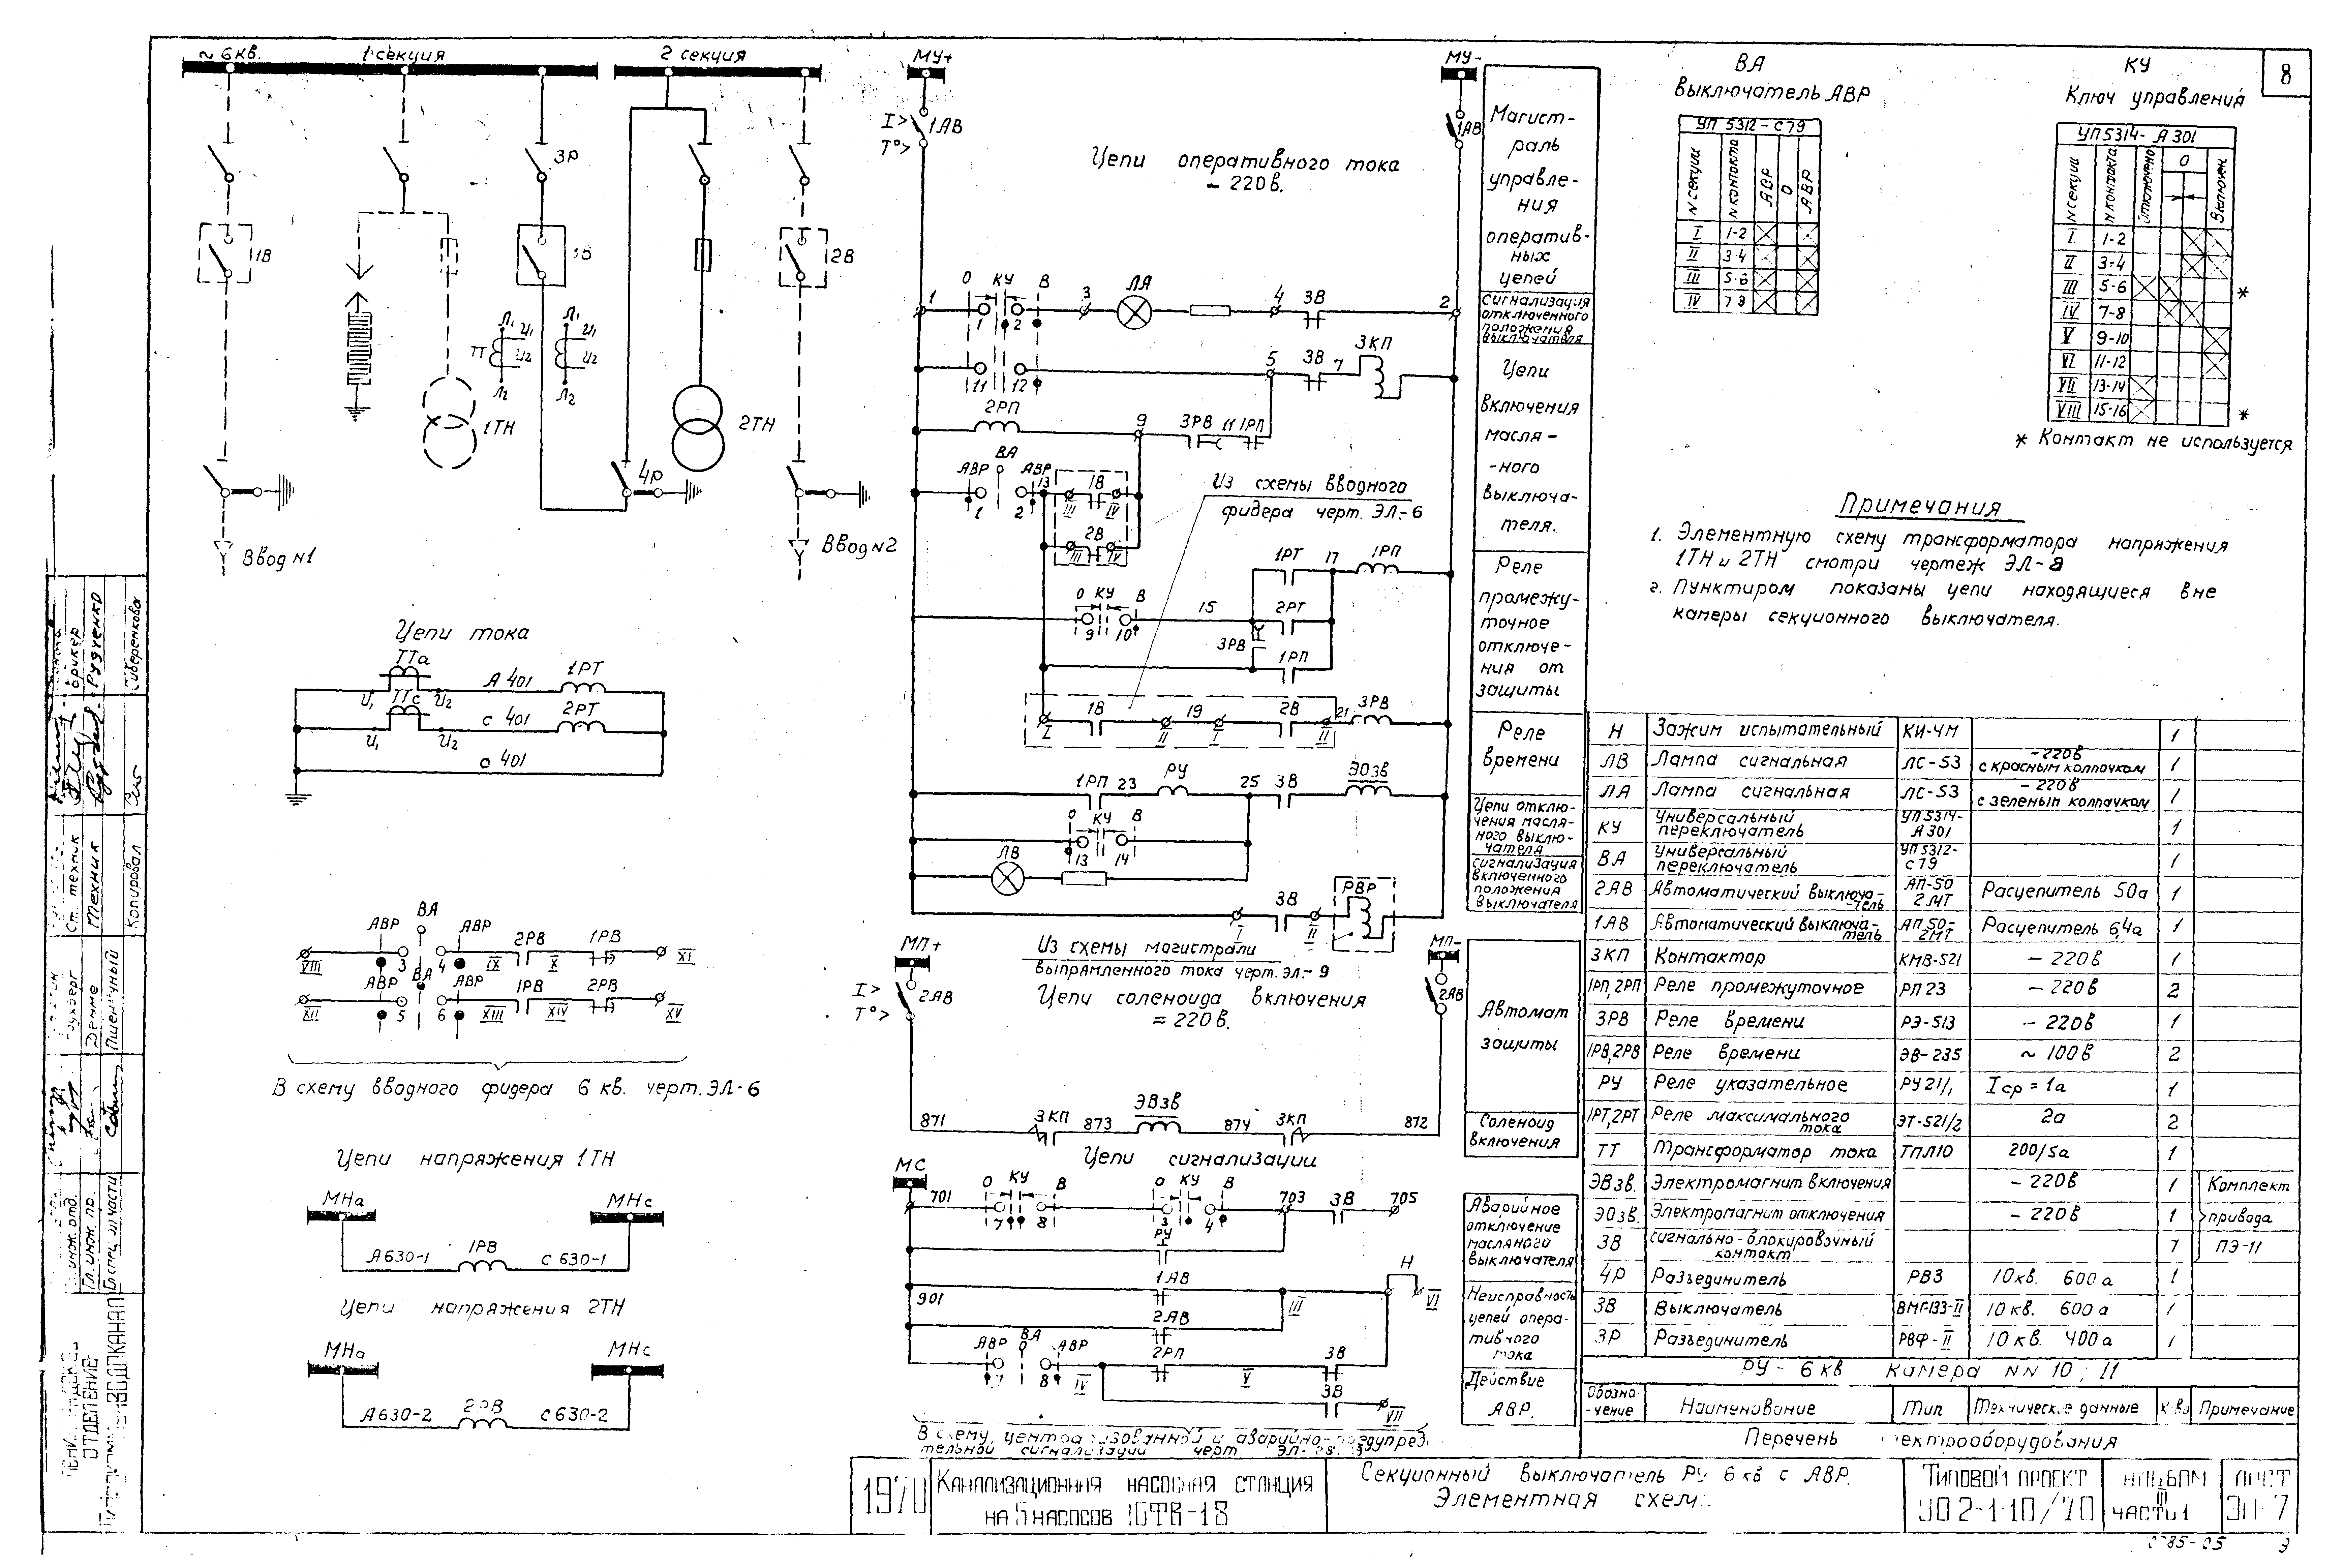 8
~ 6 кв.
1 секция
2 секция
3Р
1В
3В
2В
Л₁
И₁
ТТ
И₂
Л₂
Л₁
И₁
И₂
Л₂
1ТН
2ТН
4Р
Ввод N1
Ввод N2
Цепи тока
ТТа
И₁
И₂
А 401
1РТ
ТТс
И₁
И₂
с 401
2РТ
о 401
АВР
ВА
АВР
2РВ
1РВ
VIII
3
4
IX
X
XI
АВР
ВА
АВР
1РВ
2РВ
XII
5
6
XIII
XIV
XV
В схему вводного фидера 6 кв. черт. ЭЛ-6
Цепи напряжения 1ТН
МНа
МНс
А630-1
1РВ
С 630-1
Цепи напряжения 2ТН
МНа
МНс
А630-2
2РВ
С630-2
МУ+
МУ-
I>
1АВ
Т°>
1АВ
Цепи оперативного тока
- 220в.
1
О
КУ
В
3
ЛА
4
3В
2
1
2
11
12
5
3В
7
3КП
2РП
9
3РВ
11
1РП
АВР
ВА
АВР
13
1В
III
IV
1
2
2В
III
IV
Из схемы вводного
фидера черт. ЭЛ-6
1РТ
17
1РП
О
КУ
В
15
2РТ
9
10
3РВ
1РП
1В
19
2В
21
3РВ
I
II
I
II
1РП
23
РУ
25
3В
ЭО3в
О
КУ
В
13
14
ЛВ
3В
РВР
I
II
Магист-
раль
управле-
ния
оператив-
ных
цепей
Сигнализация
отключенного
положения
выключателя
Цепи
включения
масля-
-ного
выключа-
теля.
Реле
промежу-
точное
отключе-
ния от
защиты
Реле
времени
Цепи отклю-
чения масля-
ного выклю-
чателя
Сигнализация
включенного
положения
выключателя
МП+
МП-
Из схемы магистрали
выпрямленного тока черт. ЭЛ-9
Цепи соленоида включения
= 220 в.
I>
2АВ
Т°>
2АВ
871
3КП
873
ЭВ3в
874
3КП
872
Автомат
защиты
Соленоид
включения
МС
Цепи сигнализации
701
О
КУ
В
О
КУ
В
703
3В
705
7
8
3
4
РУ
Н
901
1АВ
III
VI
2АВ
АВР
ВА
АВР
2РП
3В
7
8
IV
V
3В
VII
Аварийное
отключение
масляного
выключателя
Неисправность
цепей опера-
тивного
тока
Действие
АВР.
ВА
Выключатель АВР
УП 5312-С79
N секции
N контакта
АВР
О
АВР
I 1-2
II 3-4
III 5-6
IV 7-8
КУ
Ключ управления
УП5314-А301
N секции
N контакта
Отключено
О
Включен
I 1-2
II 3-4
III 5-6 *
IV 7-8
V 9-10
VI 11-12
VII 13-14
VIII 15-16 *
* Контакт не используется
Примечания
1. Элементную схему трансформатора напряжения
1ТН и 2ТН смотри чертеж ЭЛ-8
2. Пунктиром показаны цепи находящиеся вне
камеры секционного выключателя.
Н Зажим испытательный КИ-4М 1
ЛВ Лампа сигнальная ЛС-53 -220в с красным колпачком 1
ЛА Лампа сигнальная ЛС-53 -220в с зеленым колпачком 1
КУ Универсальный переключатель УП5314-А301 1
ВА Универсальный переключатель УП5312-С79 1
2АВ Автоматический выключа-тель АП-50 2МТ Расцепитель 50а 1
1АВ Автоматический выключа-тель АП50-2МТ Расцепитель 6,4а 1
3КП Контактор КМВ-521 -220в 1
1РП,2РП Реле промежуточное РП23 -220в 2
3РВ Реле времени РЭ-513 -220в 1
1РВ,2РВ Реле времени ЭВ-235 ~100в 2
РУ Реле указательное РУ21/1 Iср = 1а 1
1РТ,2РТ Реле максимального тока ЭТ-521/2 2а 2
ТТ Трансформатор тока ТПЛ10 200/5а 1
ЭВ3в. Электромагнит включения -220в 1 Комплект
ЭО3в. Электромагнит отключения -220в 1 привода
3В Сигнально-блокировочный контакт 7 ПЭ-11
4Р Разъединитель РВЗ 10кв. 600а 1
3В Выключатель ВМГ-133-II 10кв. 600а 1
3Р Разъединитель РВФ-II 10кв. 400а 1
РУ-6кв Камера NN 10; 11
Обозна-чение Наименование Тип Технические данные К-во Примечание
1970
Канализационная насосная станция
на 5 насосов 16ФВ-18
Секционный выключатель РУ 6 кв с АВР.
Типовой проект
902-1-10/70
Альбом
III
часть 1
Лист
ЭЛ-7
9
Ст. техник
Техник
Копировал
Руденко
Пшеничный
Гл. инж. пр.
ОТДЕЛЕНИЕ